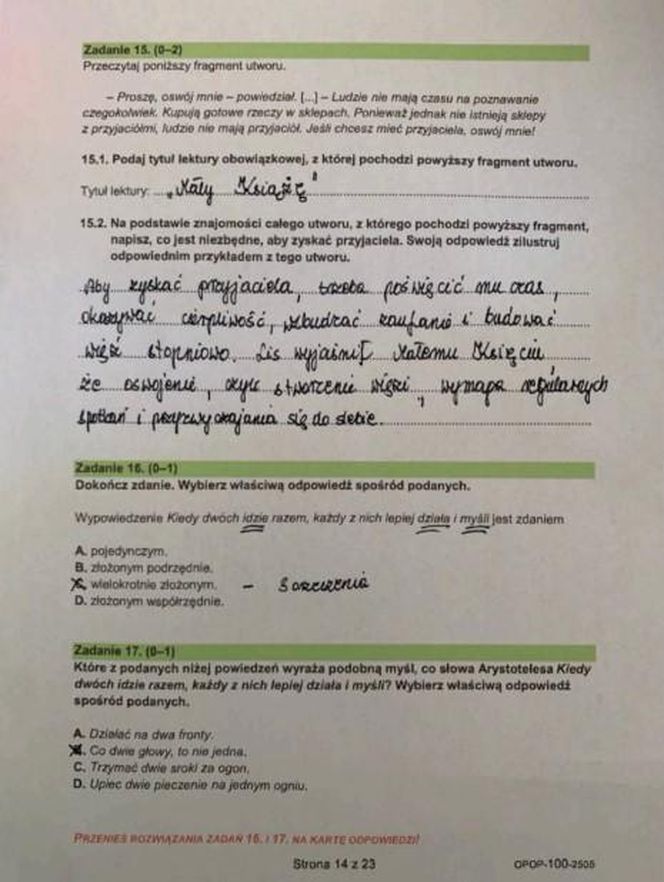 Zadanie 15. (0–2)
Przeczytaj poniższy fragment utworu.
– Proszę, oswój mnie – powiedział. [...] – Ludzie nie mają czasu na poznawanie
czegokolwiek. Kupują gotowe rzeczy w sklepach. Ponieważ jednak nie istnieją sklepy
z przyjaciółmi, ludzie nie mają przyjaciół. Jeśli chcesz mieć przyjaciela, oswój mnie!
15.1. Podaj tytuł lektury obowiązkowej, z której pochodzi powyższy fragment utworu.
Tytuł lektury: „Mały Książę"
15.2. Na podstawie znajomości całego utworu, z którego pochodzi powyższy fragment,
napisz, co jest niezbędne, aby zyskać przyjaciela. Swoją odpowiedź zilustruj
odpowiednim przykładem z tego utworu.
Aby zyskać przyjaciela, trzeba poświęcić mu czas,
okazywać cierpliwość, wzbudzać zaufanie i budować
więź stopniowo. Lis wyjaśnił Małemu Księciu,
że oswojenie, czyli stworzenie więzi, wymaga regularnych
spotkań i przyzwyczajania się do siebie.
Zadanie 16. (0–1)
Dokończ zdanie. Wybierz właściwą odpowiedź spośród podanych.
Wypowiedzenie Kiedy dwóch idzie razem, każdy z nich lepiej działa i myśli jest zdaniem
A. pojedynczym.
B. złożonym podrzędnie.
C. wielokrotnie złożonym. – 3 orzeczenia
D. złożonym współrzędnie.
Zadanie 17. (0–1)
Które z podanych niżej powiedzeń wyraża podobną myśl, co słowa Arystotelesa Kiedy
dwóch idzie razem, każdy z nich lepiej działa i myśli? Wybierz właściwą odpowiedź
spośród podanych.
A. Działać na dwa fronty.
B. Co dwie głowy, to nie jedna.
C. Trzymać dwie sroki za ogon.
D. Upiec dwie pieczenie na jednym ogniu.
PRZENIEŚ ROZWIĄZANIA ZADAŃ 16. I 17. NA KARTĘ ODPOWIEDZI!
Strona 14 z 23
OPOP-100-2505